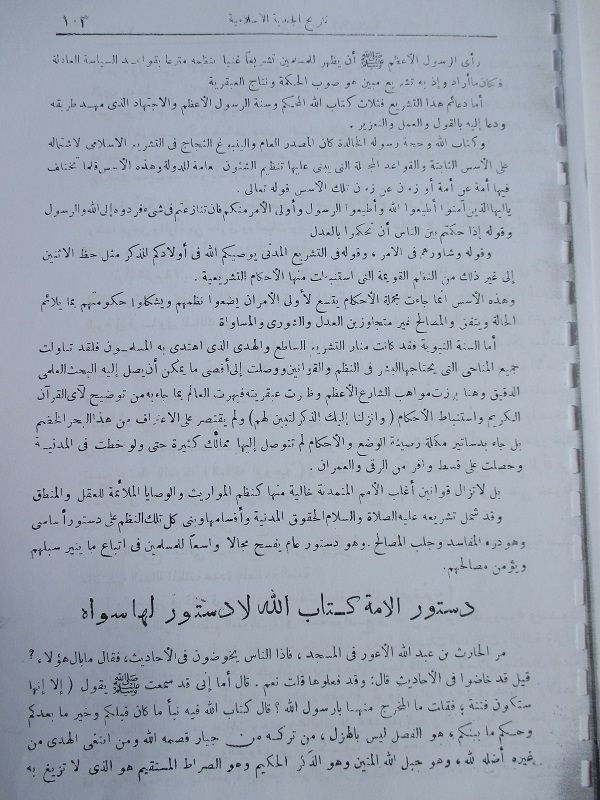 تاريخ الجندية الاسلامية ١٠٣
رأى الرسول الأعظم ﷺ أن يظهر للمسلمين تشريعاً غنياً بنظمه مترعا بقواعد السياسة العادلة
فكان ما أراد وإذ به تشريع مبين هو صوب الحكمة ونتاج العبقرية
أما دعائم هذا التشريع فثلاث كتاب الله المحكم وسنة الرسول الأعظم والاجتهاد الذى مهد طريقه
ودعا إليه بالقول والعمل والتعزير .
وكتاب الله وحجة رسوله الخالدة كان المصدر العام والينبوغ النجاج فى التشريع الاسلامى لاشتماله
على الأسس الثابتة والقواعد المجملة التى يبنى عليها تنظيم الشئون العامة للدولة وهذه الأسس قلما تختلف
فيها أمة عن أمة أو زمن عن زمن تلك الأسس قوله تعالى .
ياأيها الذين آمنوا أطيعوا الله وأطيعوا الرسول وأولى الأمر منكم فان تنازعتم فى شىء فردوه إلى الله والرسول
وقوله إذا حكمتم بين الناس أن تحكموا بالعدل
وقوله وشاورهم فى الامر ، وقوله فى التشريع المدنى يوصيكم الله فى أولادكم للذكر مثل حظ الانثيين
إلى غير ذلك من النظم القويمة التى استنبطت منها الأحكام التشريعية .
وهذه الأسس انما جاءت مجملة الأحكام يتسع لأولى الأمر ان يضعوا نظمهم ويشكلوا حكومتهم بما يلائم
الحالة ويتفق والمصالح غير متجاوزين العدل والشورى والمساواة
أما السنة النبوية فقد كانت منار التشريع الساطع والهدى الذى اهتدى به المسلمون فلقد تناولت
جميع المناحى التى يحتاجها البشر فى النظم والقوانين ووصلت إلى أقصى ما يمكن أن يصل إليه البحث العلمى
الدقيق وهنا برزت مواهب الشارع الأعظم وظهرت عبقريته فبهرت العالم بما جاء به من توضيح لآى القرآن
الكريم واستنباط الأحكام ( وانزلنا إليك الذكر لتبين لهم ) ولم يقتصر على الاغتراف من هذا البحر الخضم
بل جاء بدساتير مكملة رصينة الوضع والأحكام لم تتوصل إليها ممالك كثيرة حتى ولو خطت فى المدنية
وحصلت على قسط وافر من الرقى والعمران .
بل لا تزال قوانين أغلب الأمم المتمدنة خالية منها كنظم المواريث والوصايا الملائمة للعقل والمنطق
وقد شمل تشريعه عليه الصلاة والسلام الحقوق المدنية وأقسامها وبنى كل تلك النظم على دستور أساسى
وهو درء المفاسد وجلب المصالح . وهو دستور عام يفسح مجالا واسعاً للمسلمين فى اتباع ما ينير سبلهم
ويؤمن مصالحهم.
دستور الامة كتاب الله لا دستور لها سواه
مر الحارث بن عبد الله الأعور فى المسجد ، فاذا الناس يخوضون فى الأحاديث، فقال مابال هؤلاء ؟
قيل قد خاضوا فى الأحاديث قال: وقد فعلوها قلت نعم . قال أما إنى قد سمعت ﷺ يقول ( إلا إنها
ستكون فتنة ، فقلت ما المخرج منها يارسول الله ؟ قال كتاب الله فيه نبأ ما كان قبلكم وخبر ما بعدكم
وحكم ما بينكم ، هو الفصل ليس بالهزل ، من تركه من جبار قصمه الله ومن ابتغى الهدى من
غيره أضله لله ، وهو حبل الله المتين وهو الذكر الحكيم وهو الصراط المستقيم هو الذى لا تزيغ به